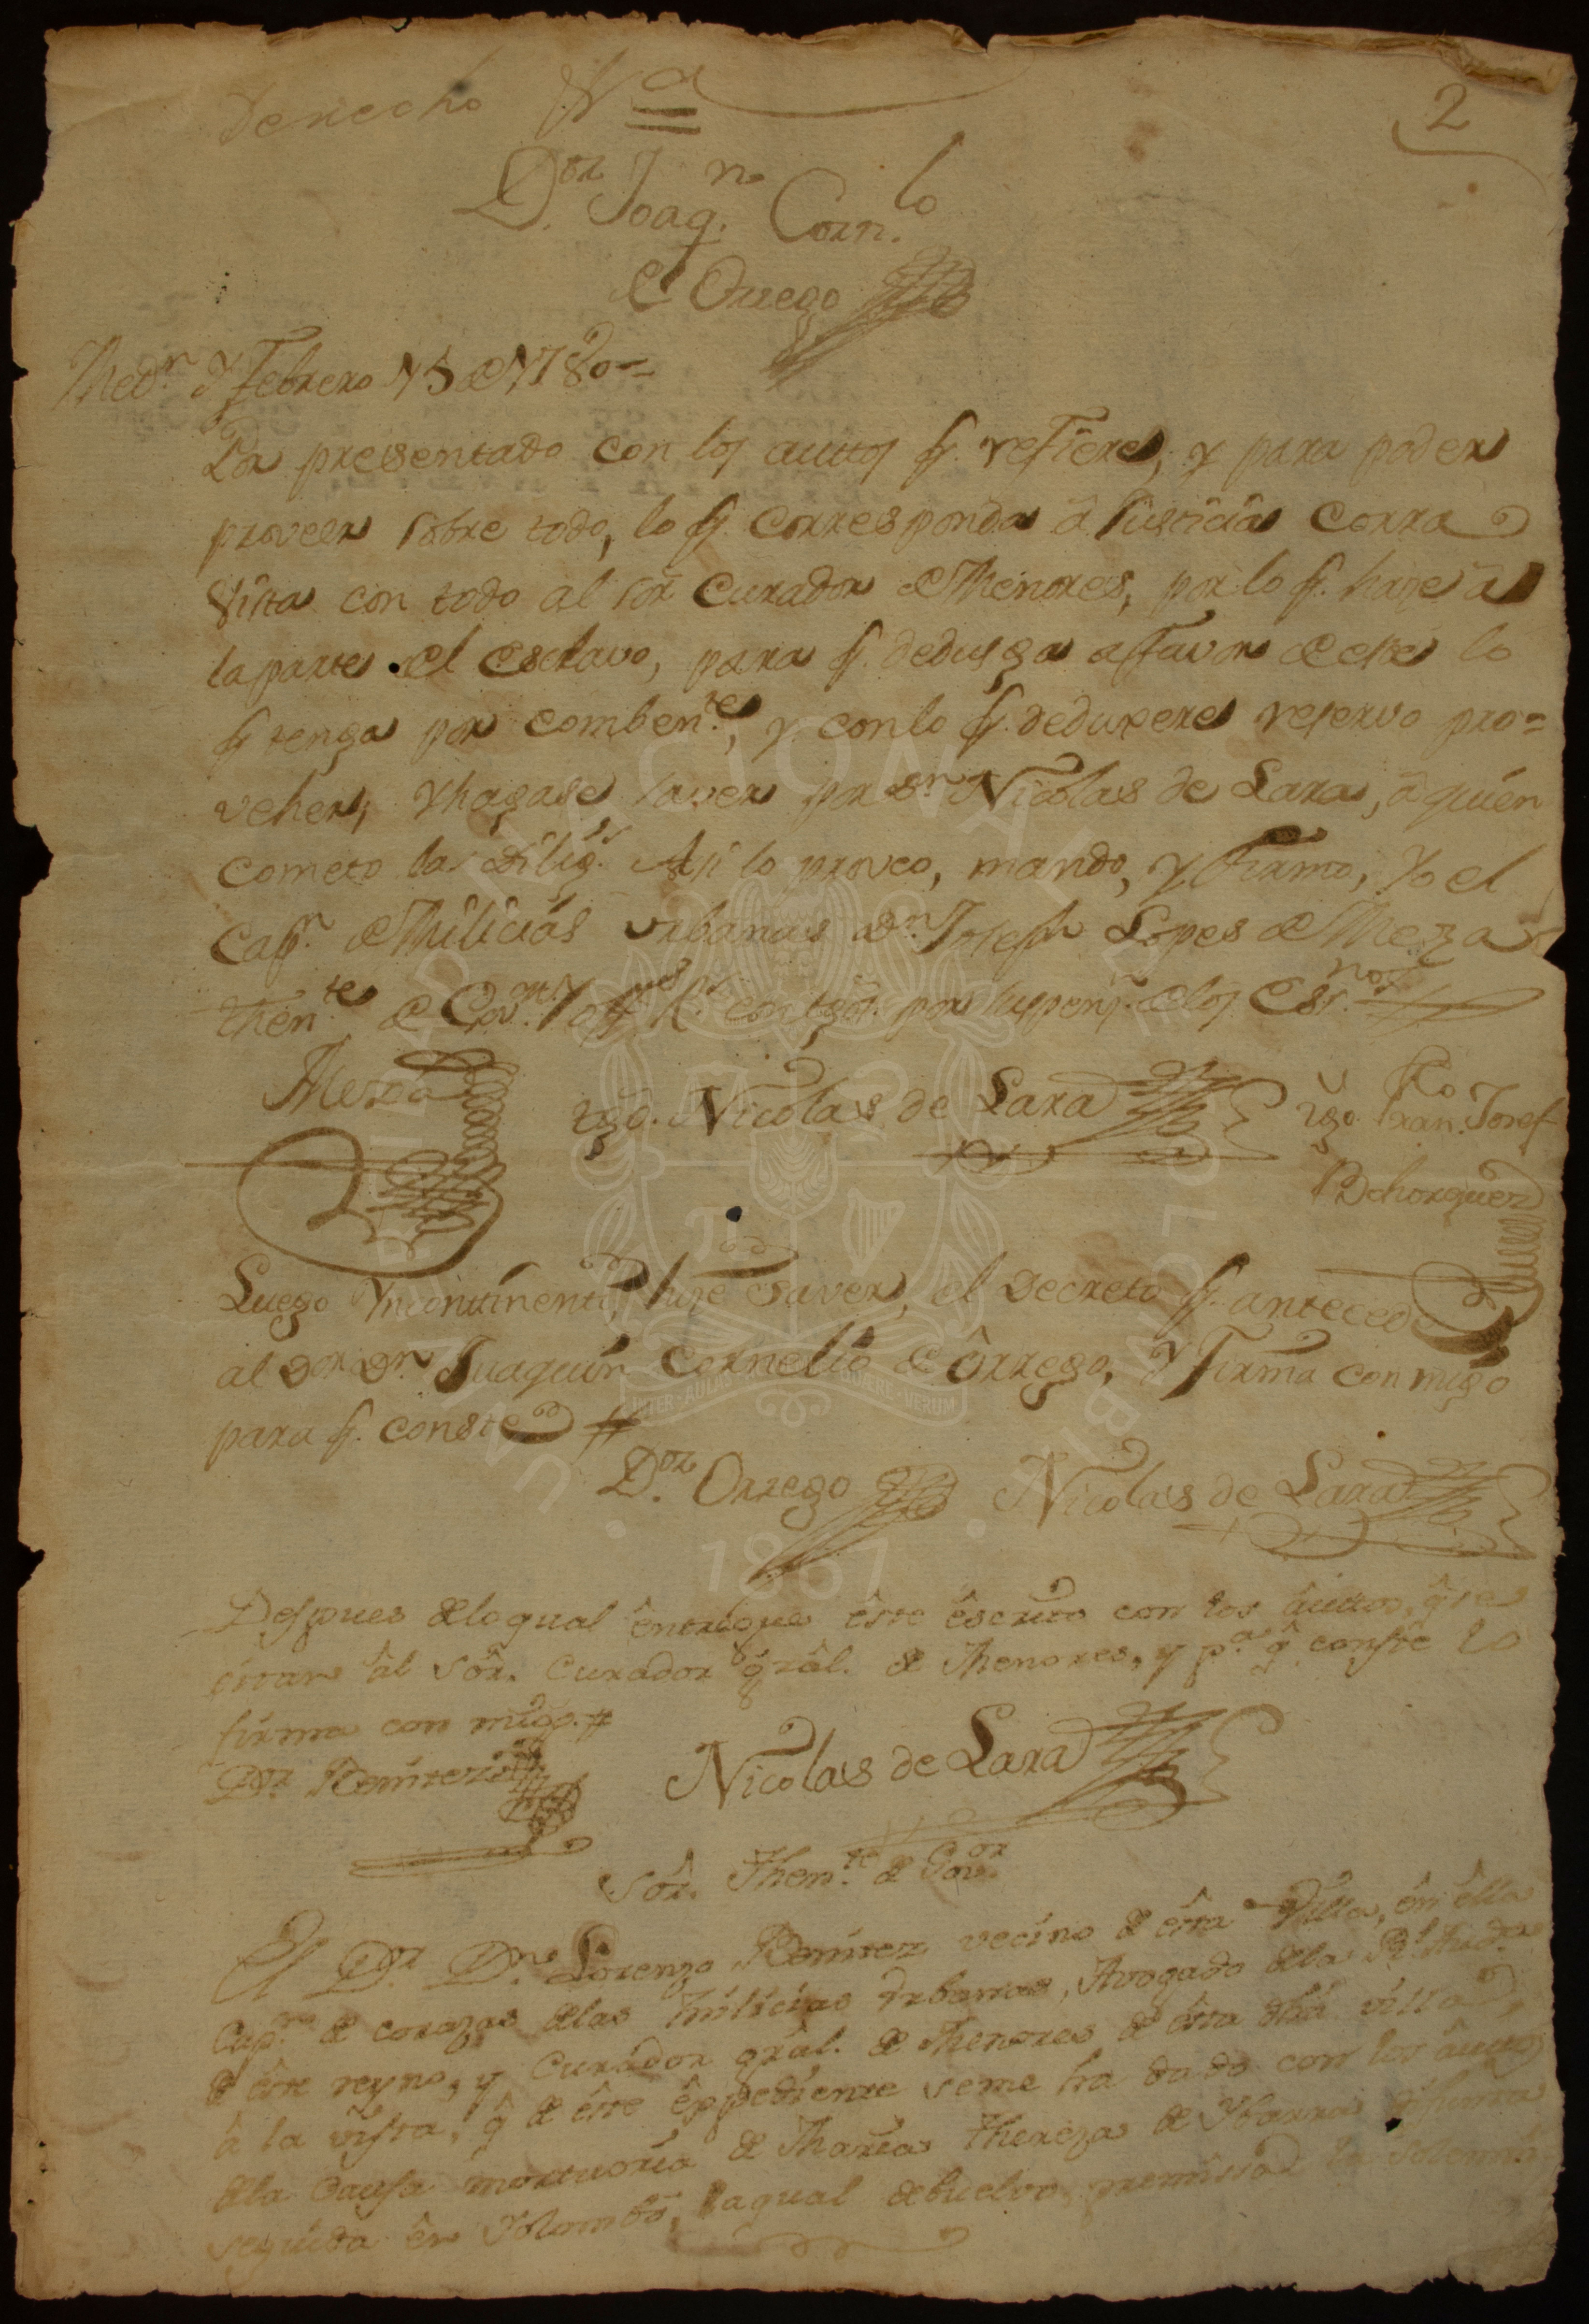 Derecho Nª
2
D.or Joaq.n Corn.lo
de Orrego
Med.n y Febrero 15 de 1780=
Por presentado con los autos q. refiere, y para poder
proveer sobre todo, lo q. corresponda â Justicia corra
Vista con todo al sôr Curador de Menores, por lo q. haze â
la parte del esclavo, para q. dedusga afavor de este lo
q tenga por comben.te, y con lo q. dedugere reservo pro=
veher, y hagase saver por Dn Nicolas de Lara, â quien
cometo las dilig.s Asi lo proveo, mando, y firmo, Yo el
Capn. de Milicias urbanas Dn. Joseph Lopes de Meza
Then.te de Gov.or y Offes Rs. con tgos. por suspenç. de los Esc.nos
Meza
tgo. Nicolas de Lara
tgo. Fran.co Josef
Bohorquez
Luego Yncontinenti, hize saver, el Decreto q. antecede
al Dor Dn Juaquin Cornelio de Ôrrego, y Firma con migo
para q. conste #
D.or Orrego Nicolas de Lara
Despues de lo qual êntregue êste êscrito con los âuttos, q̂ se
citan âl Sôr. Curador grâl. de Menores, y p.ª q̂ conste lo
firma con migo. #
D.or Benitez
Nicolas de Lara
Sôr. Then.te de Gov.or
El D.or D.n Lorenzo Benitez vecino de êsta Villa, ên êlla
Cap.n de corazas de las Milicias Urbanas, Avogado de la R.l Aud.ª
de êste reyno, y Curador grâl. de Menores de êsta dhâ villa,
â la vista, q̂ de êste êxpediente se me ha dado con los âuttos
de la Causa mortuoria de Maria Thereza de Ybarra difunta
seguida ên Yolombô, la qual debuelvo, premissa la solemni